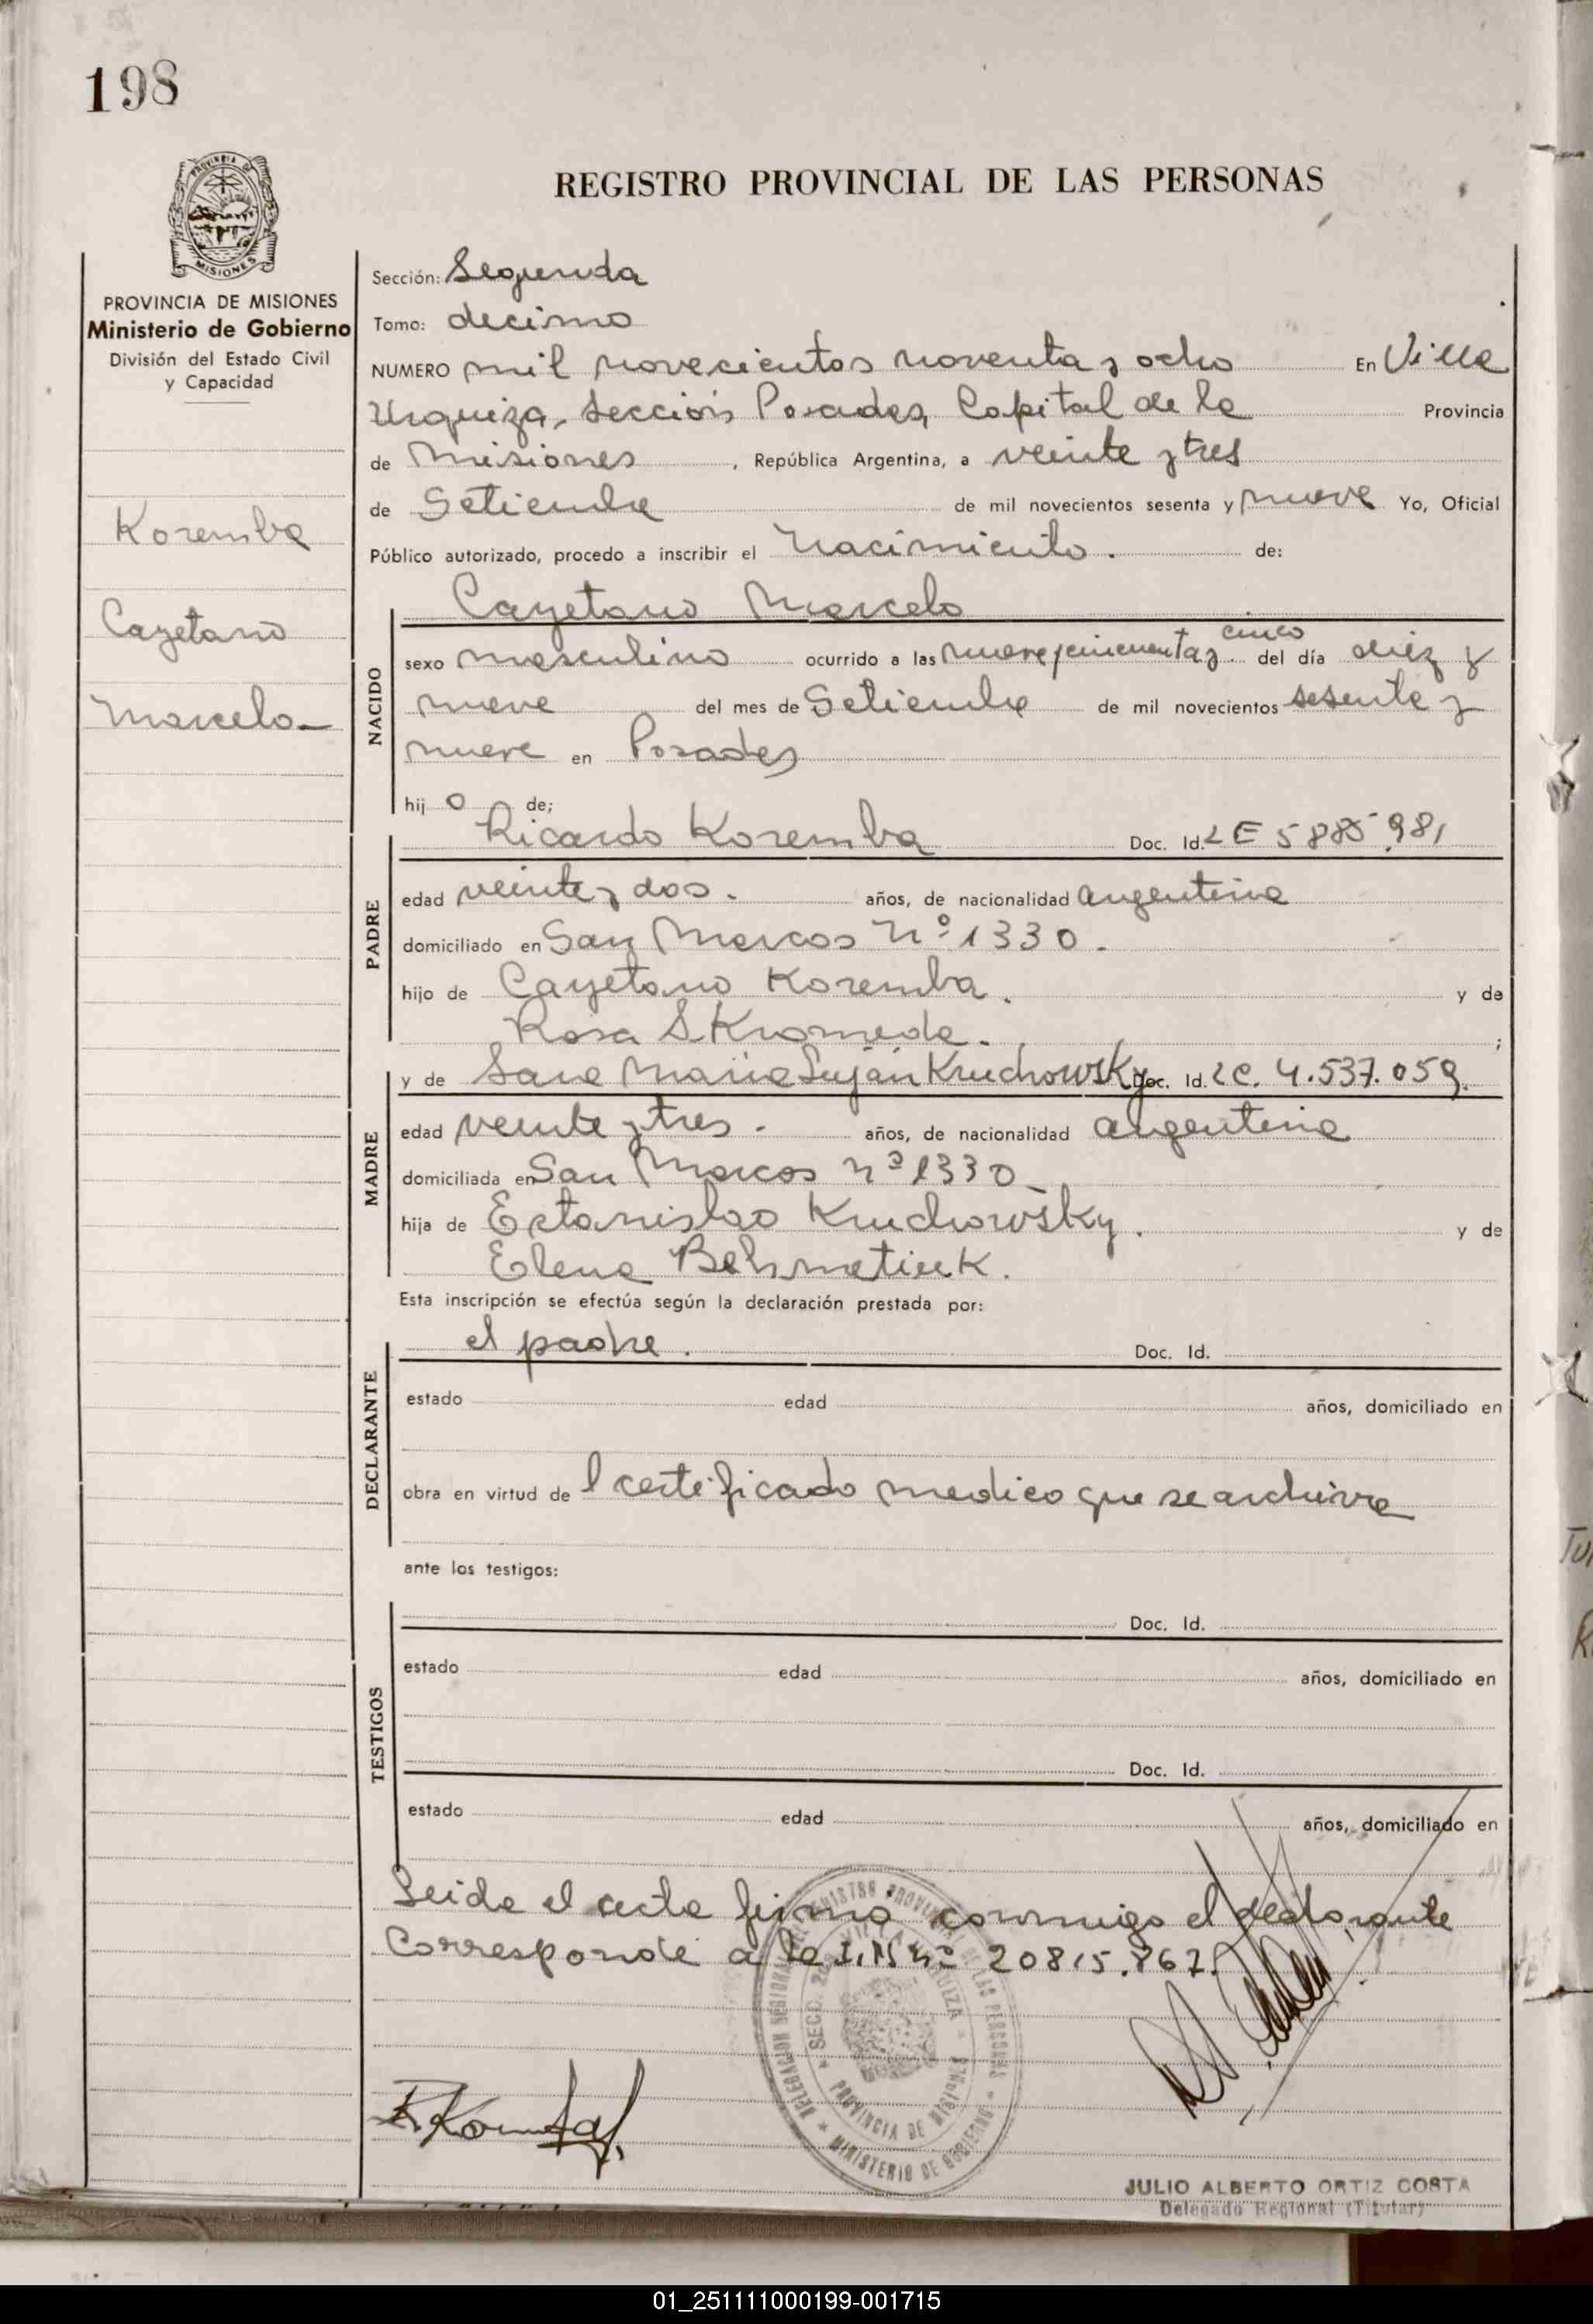 198
REGISTRO PROVINCIAL DE LAS PERSONAS
PROVINCIA DE
MISIONES
PROVINCIA DE MISIONES
Ministerio de Gobierno
División del Estado Civil
y Capacidad
Koremba
Cayetano
Marcelo
Sección: Segunda
Tomo: decimo
NUMERO mil novecientos noventa y ocho En Villa
Urquiza, Sección Posadas, Capital de la Provincia
de Misiones, República Argentina, a veinte y tres
de Setiembre de mil novecientos sesenta y nueve Yo, Oficial
Público autorizado, procedo a inscribir el Nacimiento. de:
NACIDO
Cayetano Marcelo
sexo masculino ocurrido a las nueve y cincuenta y cinco del día diez y
nueve del mes de Setiembre de mil novecientos sesenta y
nueve en Posadas
hijo de;
PADRE
Ricardo Koremba Doc. Id. LE 5885.981
edad veinte y dos. años, de nacionalidad argentina
domiciliado en San Marcos Nº 1330.
hijo de Cayetano Koremba. y de
Rosa Skromeda. ;
MADRE
y de Sara Maria Luján Kruchowsky Doc. Id. LC. 4.537.059.
edad veinte y tres. años, de nacionalidad argentina
domiciliada en San Marcos nº 1330
hija de Estanislao Kruchowsky. y de
Elena
Esta inscripción se efectúa según la declaración prestada por:
DECLARANTE
el padre. Doc. Id.
estado edad años, domiciliado en
obra en virtud del certificado medico que se archiva
ante los testigos:
TESTIGOS
Doc. Id.
estado edad años, domiciliado en
Doc. Id.
estado edad años, domiciliado en
Leida el acta firma conmigo el declarante
Corresponde a la I.N nº 20815.867.
PROVINCIAL DE LAS PERSONAS
MINISTERIO DE GOBIERNO
PROVINCIA DE MISIONES
JULIO ALBERTO ORTIZ COSTA
Delegado Regional (Titular)
01_251111000199-001715